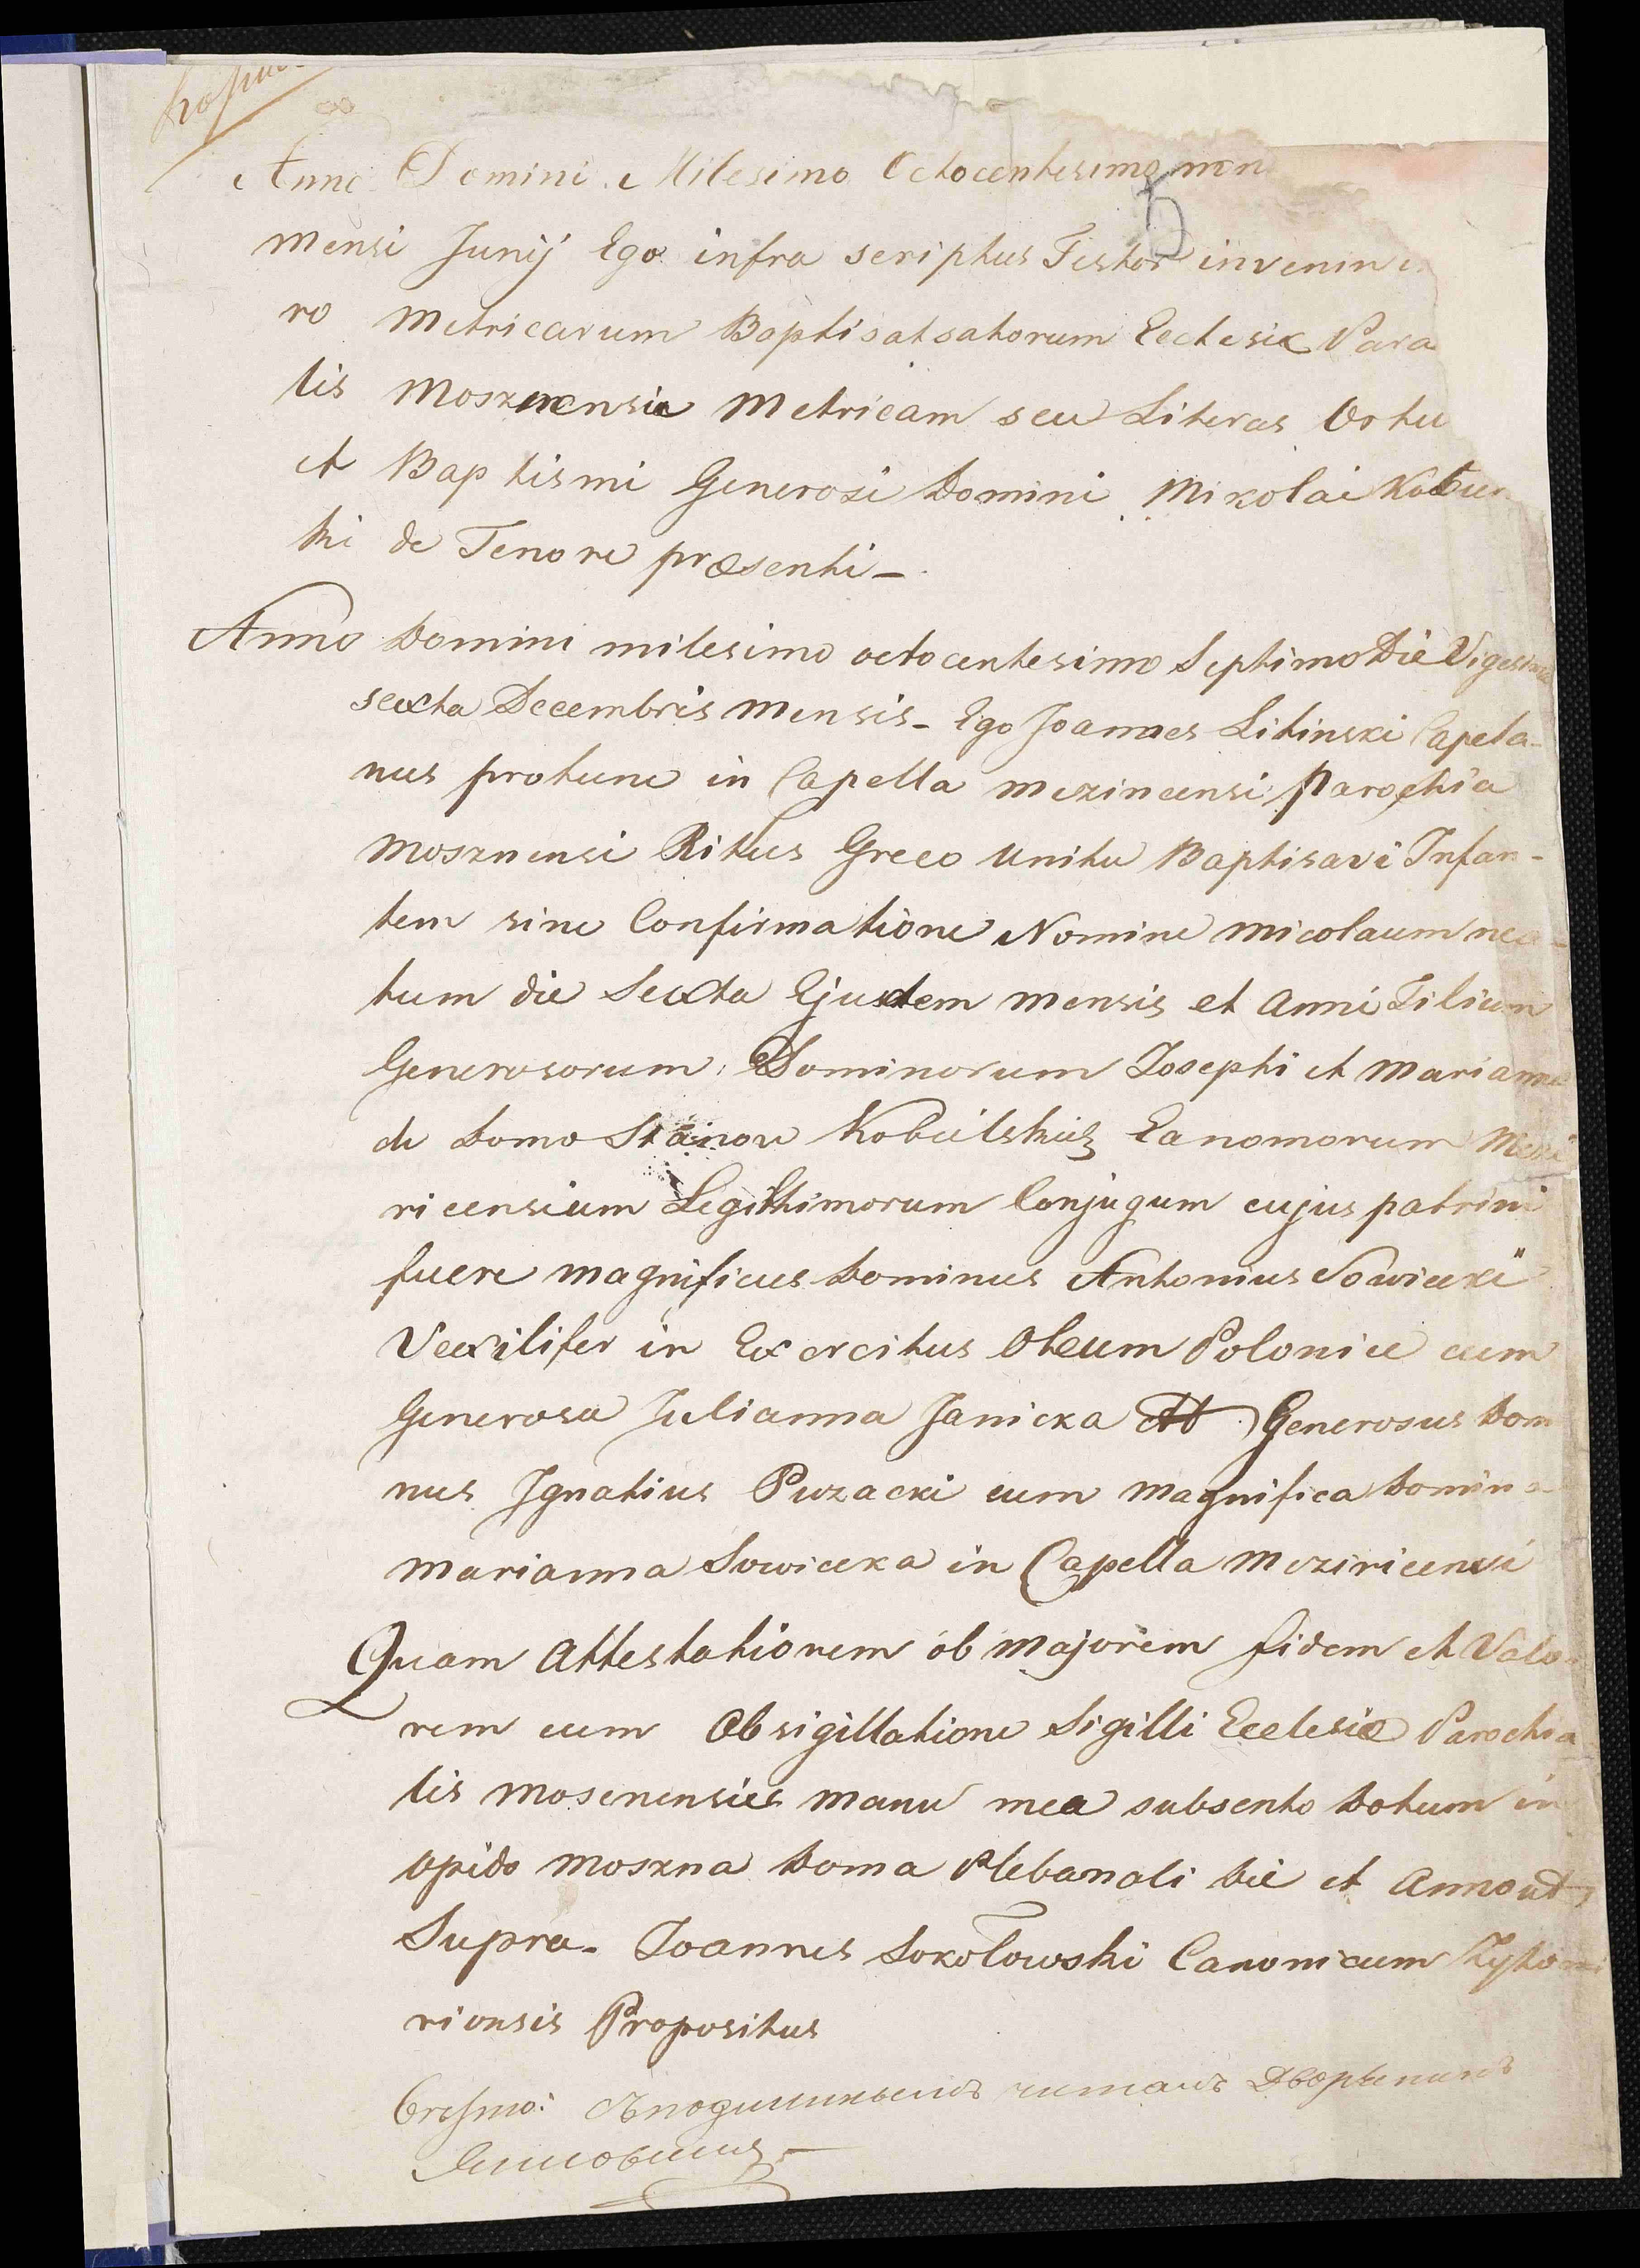 Копия
Anno Domini Milesimo Octocentesimo non
5
mensi Junij Ego infra scriptus Testor invenin
ro Metricarum Baptisatsatorum Ecclesiæ Para
lis Mosznensie Metricam seu Literas Ortu
et Baptismi Generosi Domini Mikolai Kobu
ki de Tenore præsenti_
Anno Domini milesimo octocentesimo Septimo Die Vigesima
sexta Decembris mensis_ Ego Joannes Litinski Capela-
nus protunc in Capella mezincensi parochia
Mosznensi Ritus Greco Unitu Baptisavi Infan-
tem sine Confirmatione Nomine Micolaum na-
tum die Sexta Ejusdem mensis et Anni Filium
Generosorum Dominorum Josephi et Marianna
de Domo Stanow Kobulskich Eanomorum Mezi
ricensium Legitthimorum Conjugum cujus patrini
fuere magnificus Dominus Antonius Sowicki
Vexilifer in Exercitus Oleum Polonice cum
Generosa Julianna Janicka et Generosus Dom
nus Ignatius Puzacki cum Magnifica Domina
Marianna Sowicka in Capella Meziricensi
Quam Attestationem ob majorem fidem et Valo-
rem cum Obsigillatione Sigilli Ecclesiæ Parochia
lis Mosenensies manu mea subsento Dotum in
opido Moszna Doma Plebanali die et Anno ut
Supra_ Joannes Sokołowski Canonicum Zytomi
rionsis Propositus
съ подлиннымъ читалъ Дворянинъ